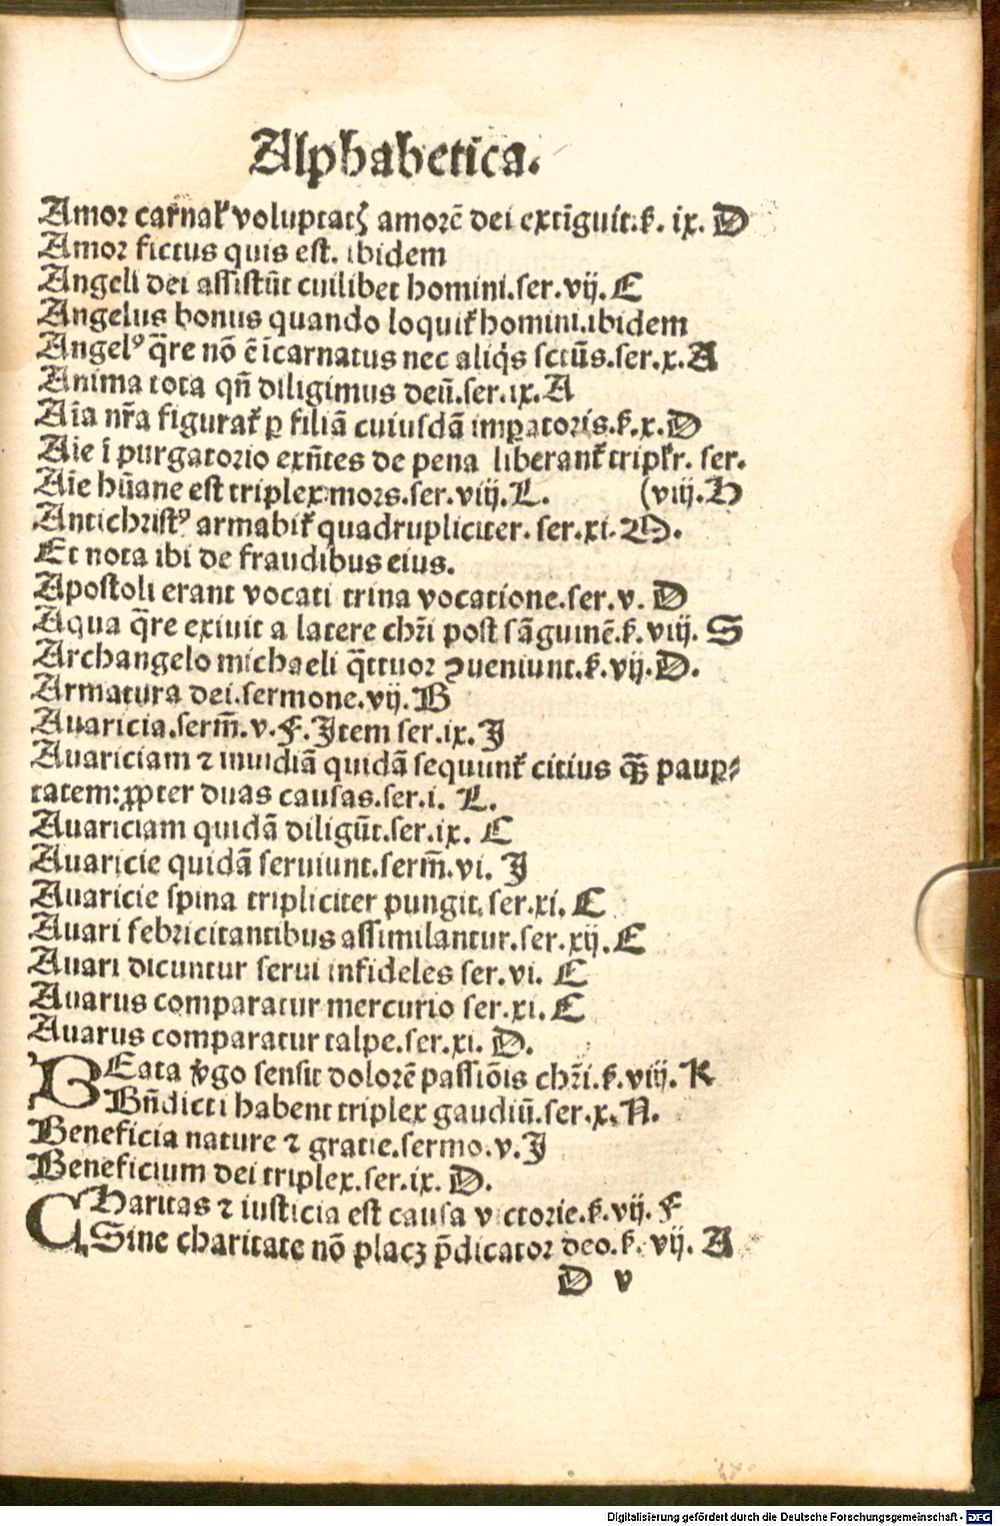 Alphabetica.
Amor carnaƚ voluptatꝭ amorē dei extīguit.ẜ. ix. D
Amor fictus quis est. ibidem
Angeli dei assistūt cuilibet homini.ser.vij. E
Angelus bonus quando loquiť homini.ibidem
Angelꝰ q̄re nō ē īcarnatus nec aliq̇s sctūs.ser.x. A
Anima tota qn̄ diligimus deū.ser.ix. A
Aīa nr̄a figurať ꝑ filiā cuiusdā imꝑatoris.ẜ.x. D
Aīe ī purgatorio exn̄tes de pena liberanť tripƚr. ser.
Aīe hūane est triplex mors.ser.viij. L. (viij. H
Antichristꝰ armabiť quadrupliciter. ser.xi. M.
Et nota ibi de fraudibus eius.
Apostoli erant vocati trina vocatione.ser.v. D
Aqua q̄re exiuit a latere chr̄i post sāguinē.ẜ.viij. S
Archangelo michaeli q̄ttuor ꝯueniunt.ẜ.vij. D.
Armatura dei.sermone.vij. B
Auaricia.serm̄.v. F. Item ser.ix. J
Auariciam ⁊ inuidiā quidā sequunť citius qꝫ̄ pauꝑ⸗
tatem:ꝓpter duas causas.ser.i. L.
Auariciam quidā diligūt.ser.ix. C
Auaricie quidā seruiunt.serm̄.vi. J
Auaricie spina tripliciter pungit.ser.xi. C
Auari febricitantibus assimilantur.ser.xij. E
Auari dicuntur serui infideles ser.vi. E
Auarus comparatur mercurio ser.xi. C
Auarus comparatur talpe.ser.xi. D.
BEata v̄go sensit dolorē passiōis chr̄i.ẜ.viij. K
Bn̄dicti habent triplex gaudiū.ser.x. N.
Beneficia nature ⁊ gratie.sermo.v. J
Beneficium dei triplex.ser.ix. D.
CHaritas ⁊ iusticia est causa victorie.ẜ.vij. F
Sine charitate nō placꝫ p̄dicator deo.ẜ. vij. A
D v
Digitalisierung gefördert durch die Deutsche Forschungsgemeinschaft - DFG